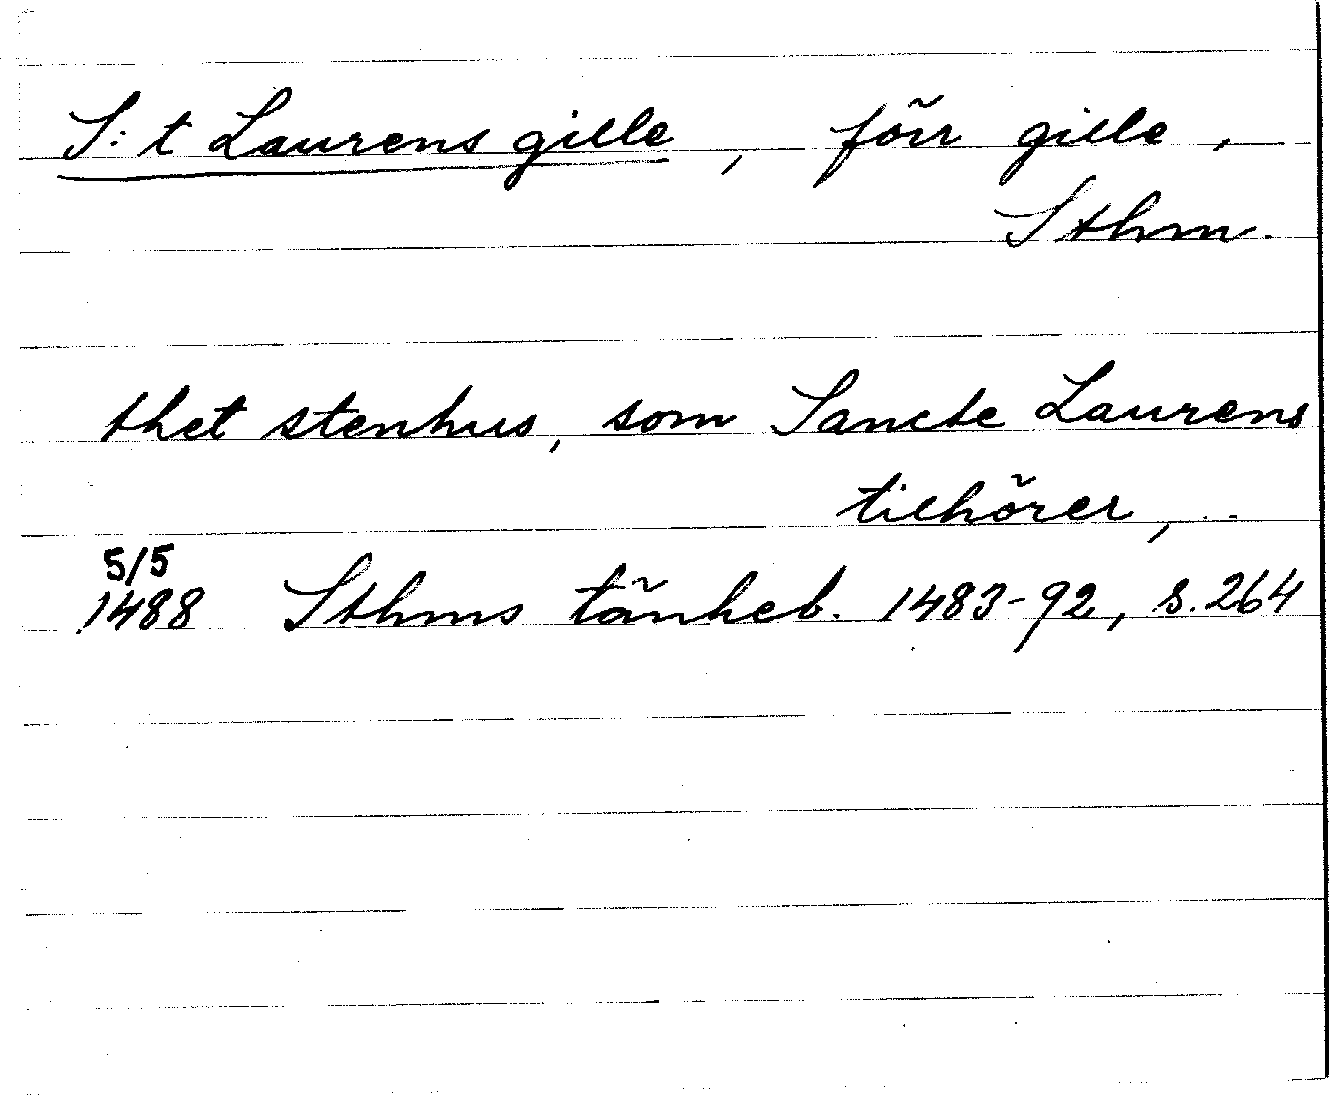 S:t Laurens gille, förr gille,
Sthm.
thet stenhus, som Sancte Laurens
tilhörer, ..
5/5
1488 Sthms tänkeb. 1483-92, s. 264